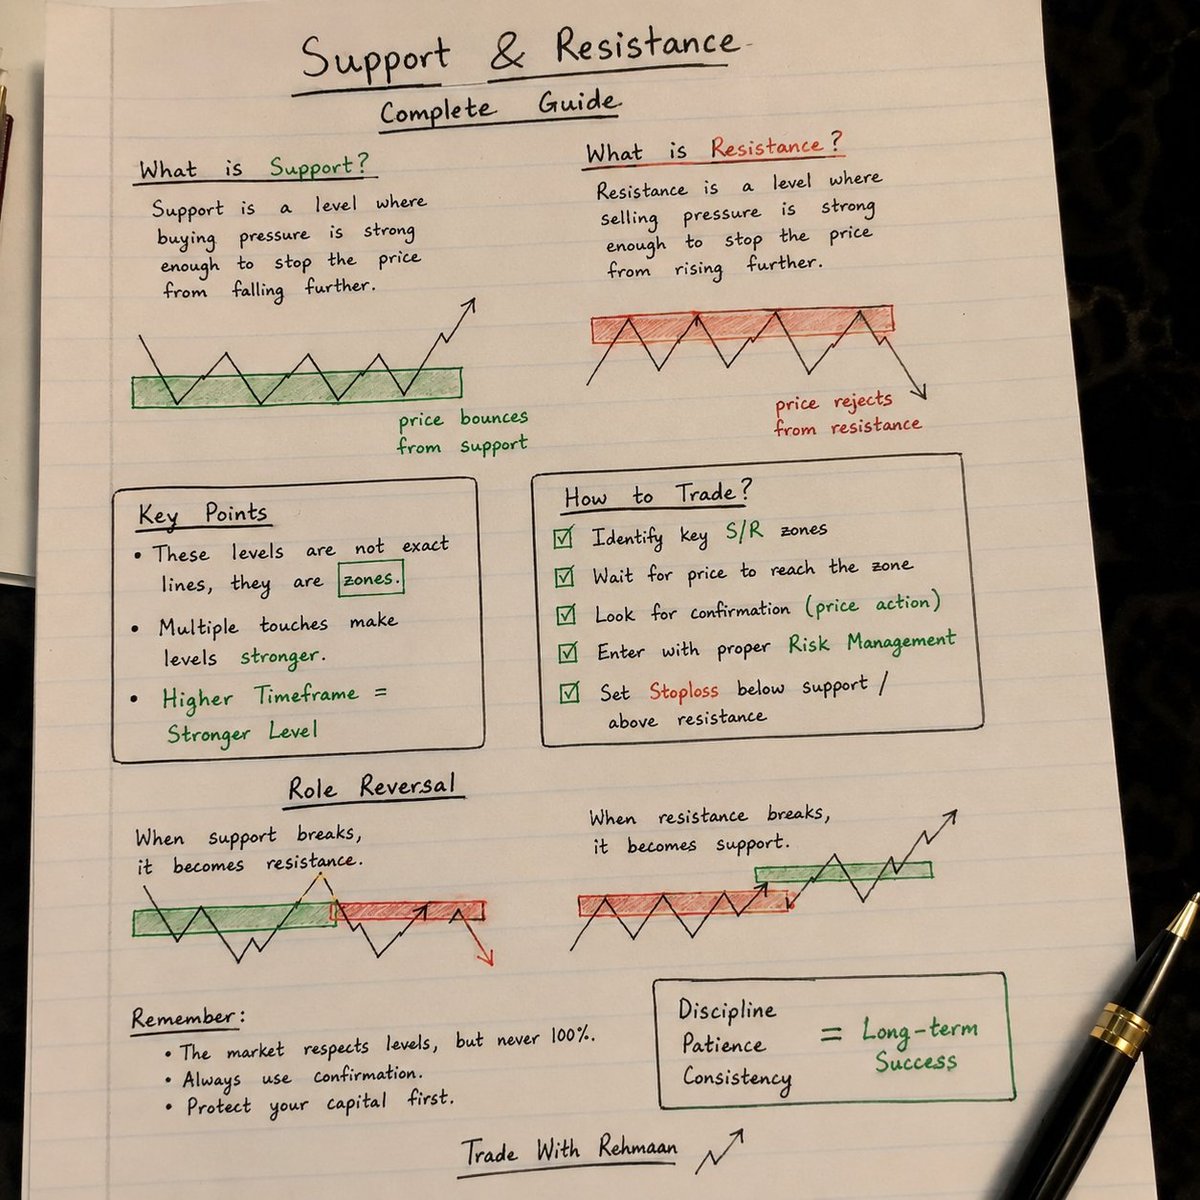 Support & Resistance
Complete Guide
What is Support?
Support is a level where
buying pressure is strong
enough to stop the price
from falling further.
price bounces
from support
What is Resistance?
Resistance is a level where
selling pressure is strong
enough to stop the price
from rising further.
price rejects
from resistance
Key Points
• These levels are not exact
lines, they are zones.
• Multiple touches make
levels stronger.
• Higher Timeframe =
Stronger Level
How to Trade?
☑ Identify key S/R zones
☑ Wait for price to reach the zone
☑ Look for confirmation (price action)
☑ Enter with proper Risk Management
☑ Set Stoploss below support /
above resistance
Role Reversal
When support breaks,
it becomes resistance.
When resistance breaks,
it becomes support.
Remember:
• The market respects levels, but never 100%.
• Always use confirmation.
• Protect your capital first.
Discipline
Patience
Consistency
= Long-term
Success
Trade With Rehmaan